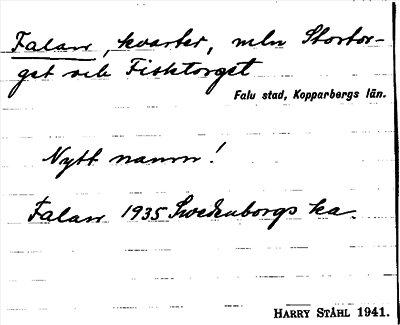 Falan, kvarter, mln Stortor-
get och Fisktorget
Falu stad, Kopparbergs län.
Nytt namn!
Falan 1935 Swedenborgs ka.
HARRY STÅHL 1941.